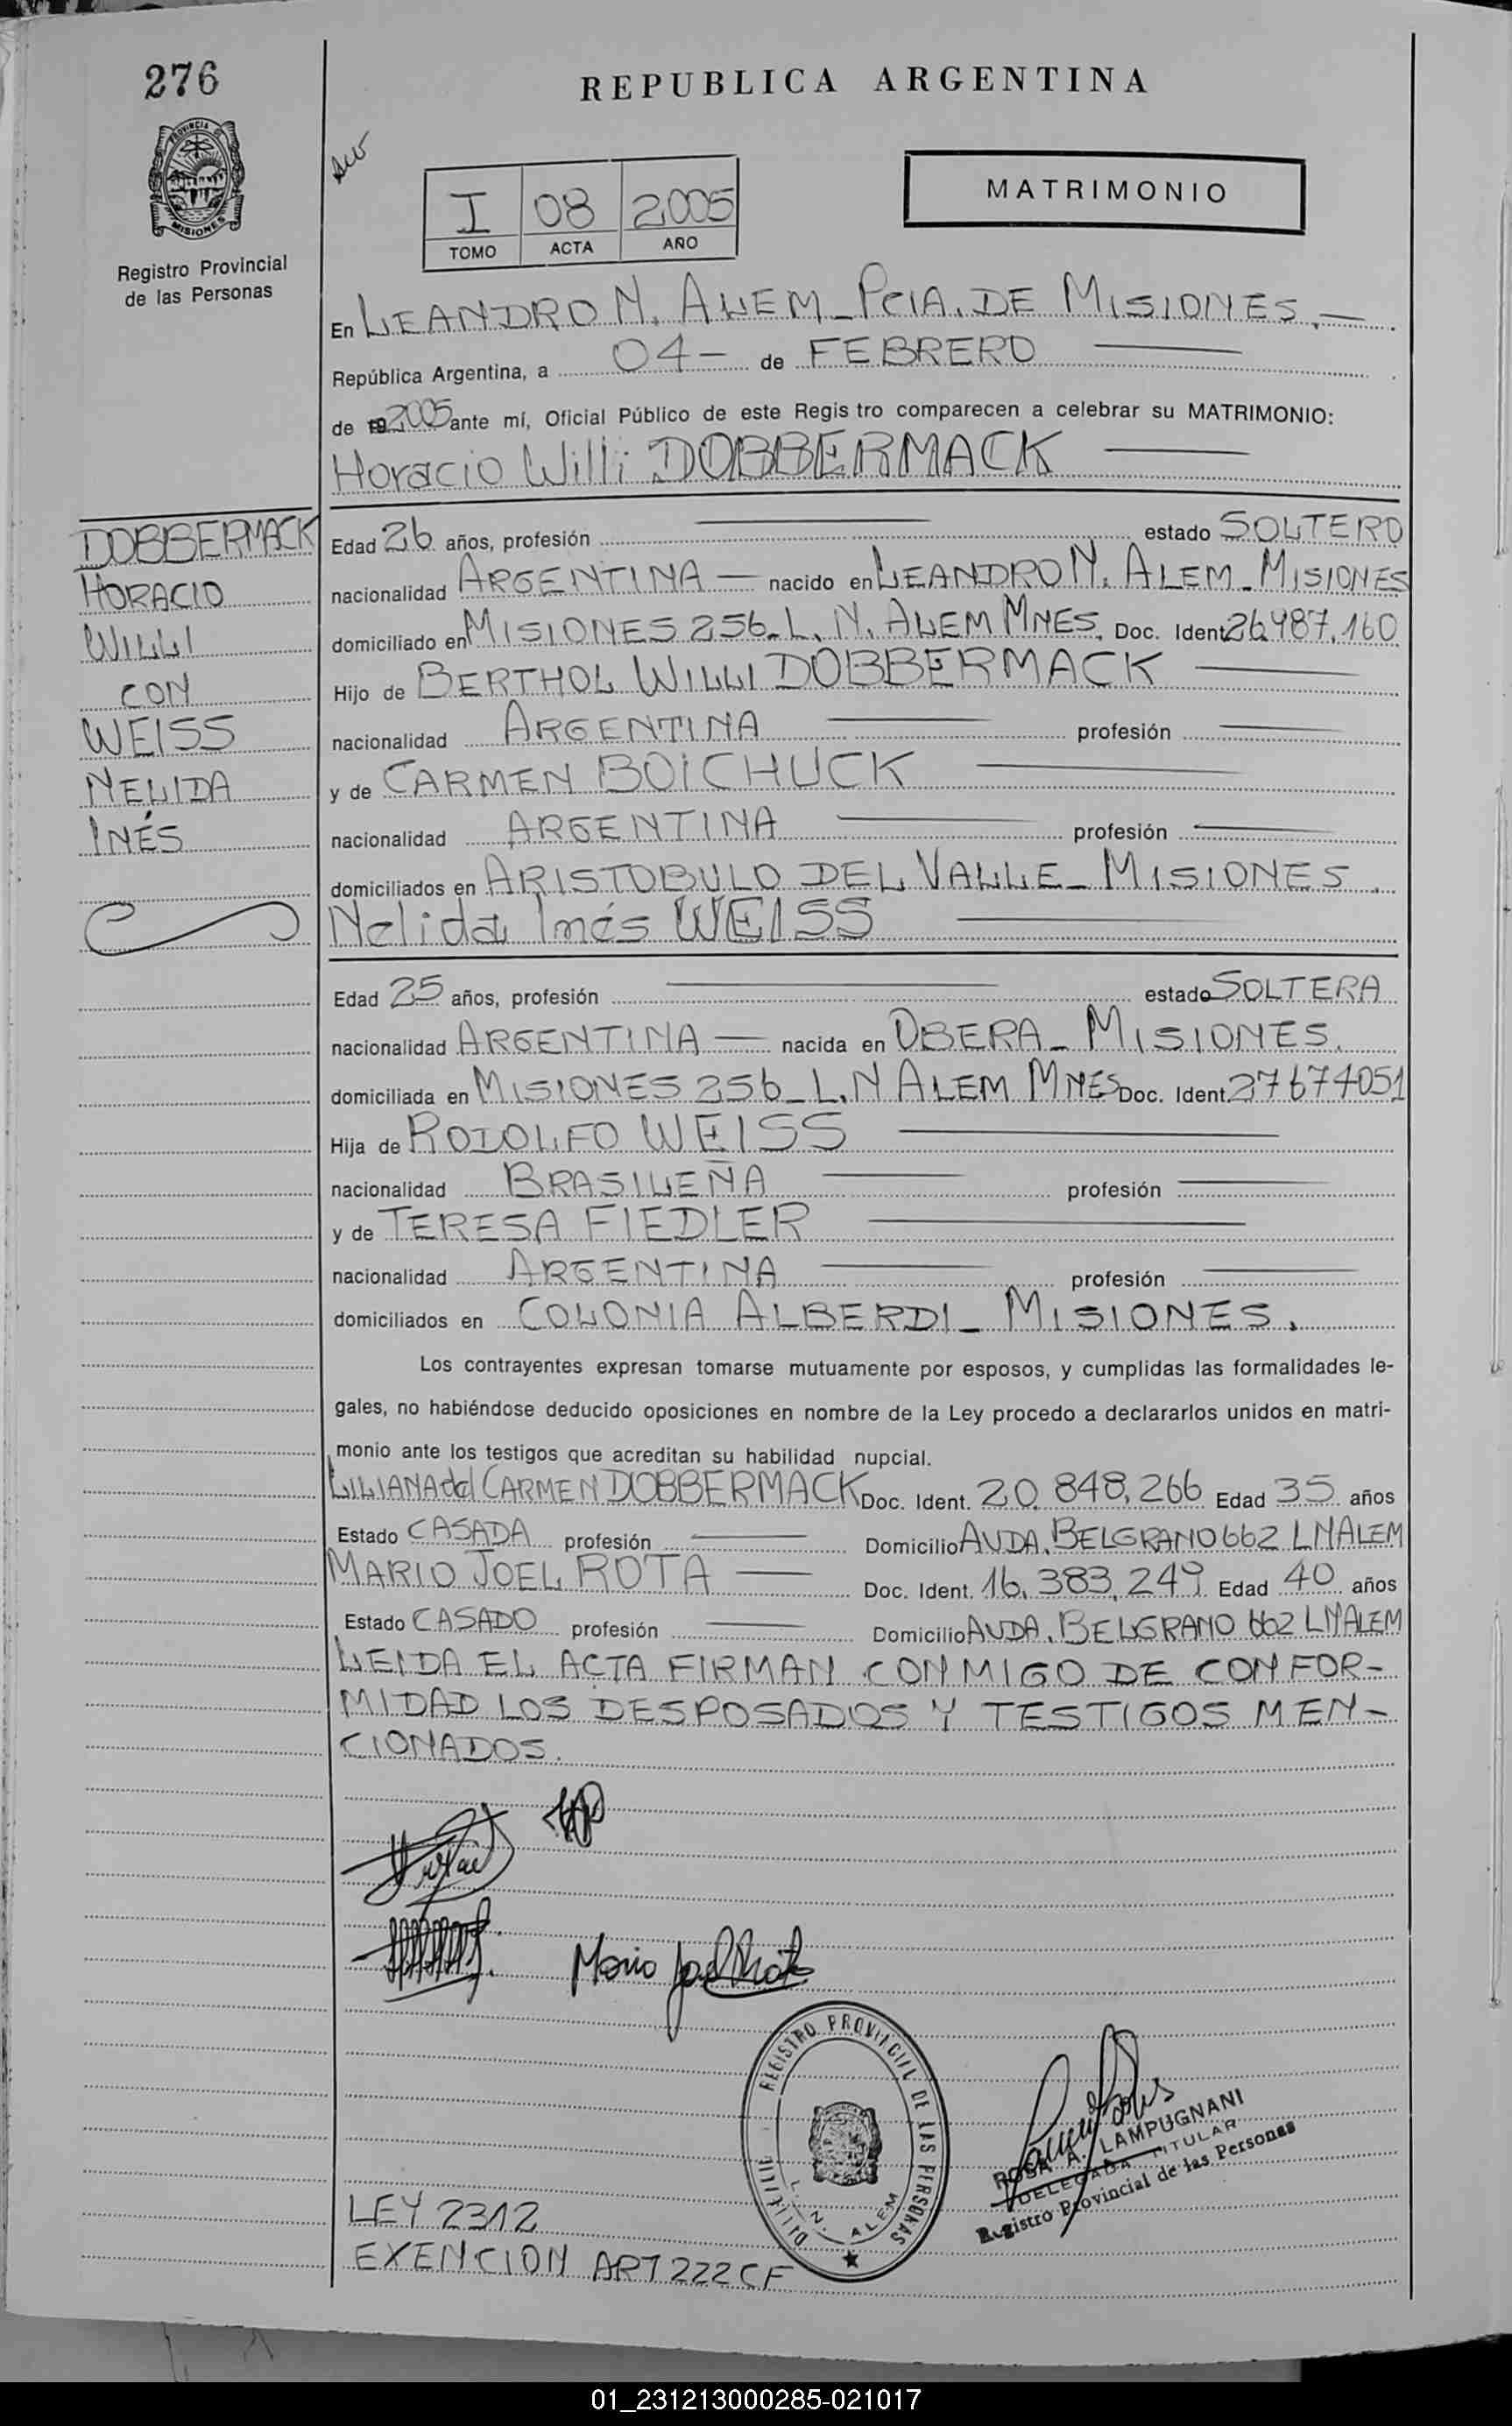 276
REPUBLICA ARGENTINA
PROVINCIA DE
MISIONES
Registro Provincial
de las Personas
I 08 2005
TOMO ACTA AÑO
MATRIMONIO
En LEANDRO N. ALEM - PCIA. DE MISIONES.
República Argentina, a 04- de FEBRERO
de 19 2005 ante mí, Oficial Público de este Regis tro comparecen a celebrar su MATRIMONIO:
Horacio Willi DOBBERMACK
DOBBERMACK
HORACIO
WILLI
CON
WEISS
NELIDA
INÉS
Edad 26 años, profesión estado SOLTERO
nacionalidad ARGENTINA - nacido en LEANDRO N. ALEM - MISIONES
domiciliado en MISIONES 256 - L. N. ALEM MNES. Doc. Ident 26.987.160
Hijo de BERTHOL WILLI DOBBERMACK
nacionalidad ARGENTINA profesión
y de CARMEN BOICHUCK
nacionalidad ARGENTINA profesión
domiciliados en ARISTOBULO DEL VALLE - MISIONES.
Nelida Inés WEISS
Edad 25 años, profesión estado SOLTERA
nacionalidad ARGENTINA - nacida en OBERA - MISIONES.
domiciliada en MISIONES 256 - L. N ALEM MNES Doc. Ident. 27674051
Hija de RODOLFO WEISS
nacionalidad BRASILEÑA profesión
y de TERESA FIEDLER
nacionalidad ARGENTINA profesión
domiciliados en COLONIA ALBERDI - MISIONES.
Los contrayentes expresan tomarse mutuamente por esposos, y cumplidas las formalidades le-
gales, no habiéndose deducido oposiciones en nombre de la Ley procedo a declararlos unidos en matri-
monio ante los testigos que acreditan su habilidad nupcial.
LILIANA del CARMEN DOBBERMACK Doc. Ident. 20.848.266 Edad 35 años
Estado CASADA profesión Domicilio AVDA. BELGRANO 662 LNALEM
MARIO JOEL ROTA Doc. Ident. 16.383.249 Edad 40 años
Estado CASADO profesión Domicilio AVDA. BELGRANO 662 LNALEM
LEIDA EL ACTA FIRMAN CONMIGO DE CONFOR-
MIDAD LOS DESPOSADOS Y TESTIGOS MEN-
CIONADOS.
Mario Joel Rota
REGISTRO PROVINCIAL DE LAS PERSONAS
L. N. ALEM
ROSA A. LAMPUGNANI
DELEGADA TITULAR
Registro Provincial de las Personas
LEY 2312
EXENCION ART 222 CF
01_231213000285-021017